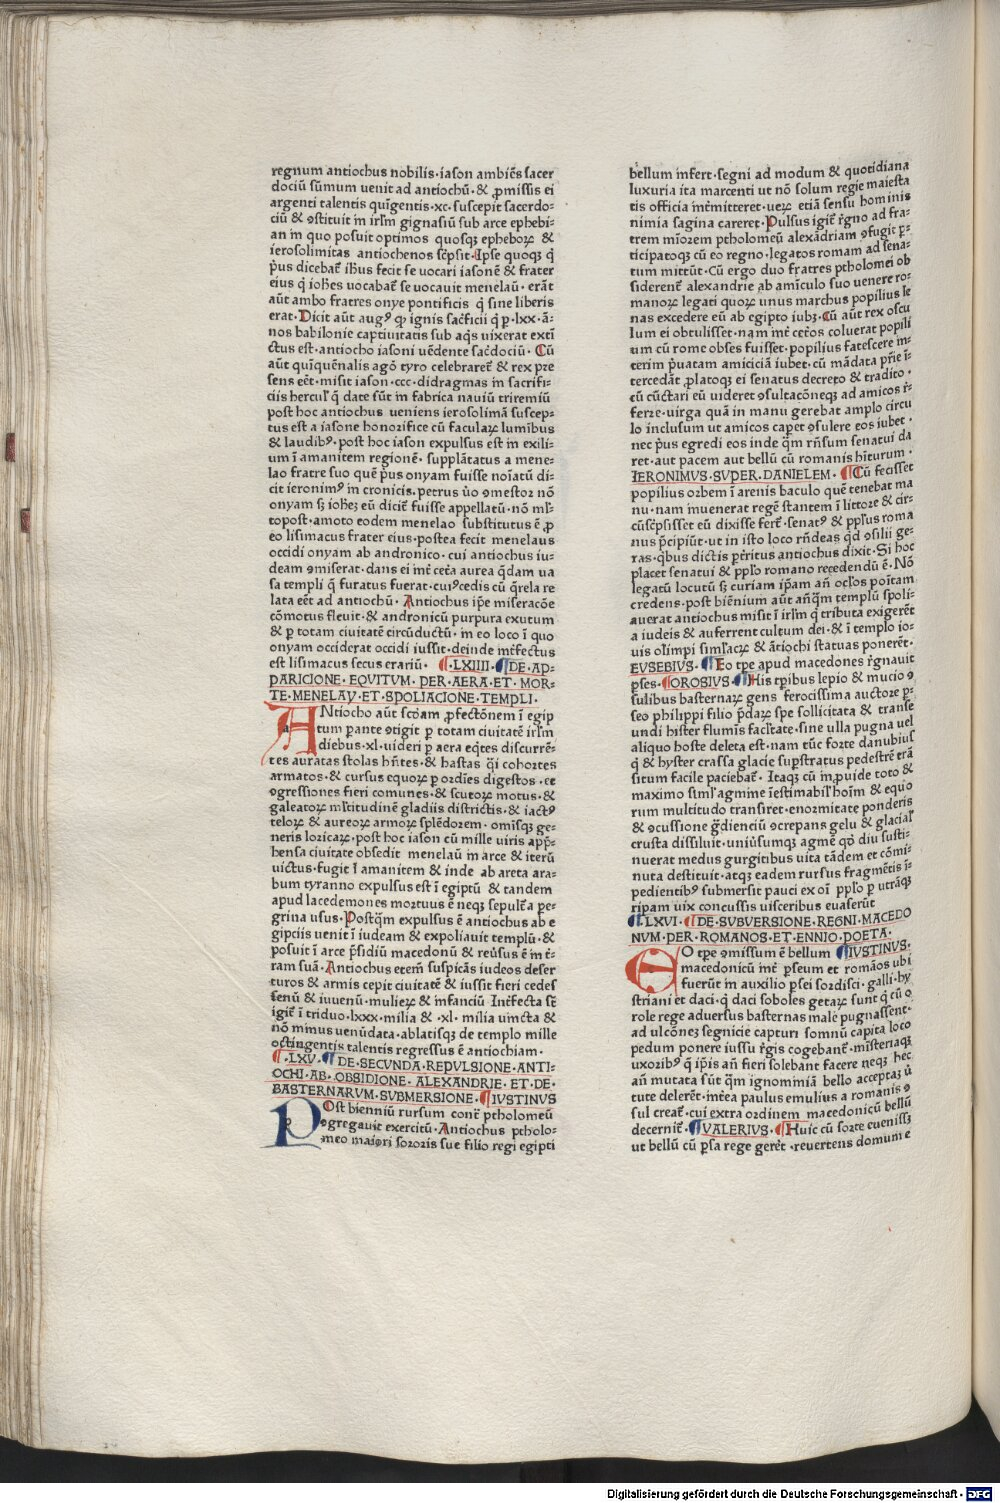 regnum antiochus nobilis·iason ambiēs sacer
dociū sūmum uenit ad antiochū·& ꝓmissis ei
argenti talentis quīgentis·xc·suscepit sacerdo⸗
ciū & ꝯstituit in irlm̄ gignasiū sub arce ephebi⸗
an in quo posuit optimos quosqꝫ epheboꝝ &
ierosolimitas antiochenos sc̄psit·Ipse quoqꝫ q̇
p̄us dicebat̄ ih̄us fecit se uocari iasonē & frater
eius q̇ ioh̄es uocabat̄ se uocauit menelaū· erāt
aūt ambo fratres onye pontificis q̇ sine liberis
erat·Dicit aūt augꝰ ꝙ ignis sac̄ficii q̇ ꝑ·lxx·ā⸗
nos babilonie captiuitatis sub aq̄s uixerat extī
ctus est·antiocho iasoni uēdente sac̄dociū· Cū
aūt quīquēnalis agō tyro celebraret̄ & rex pre
sens eēt·misit iason·ccc·didragmas in sacrifi⸗
ciis hercul' q̄ date sūt in fabrica nauiū triremiū
post hoc antiochus ueniens ierosolimā suscep⸗
tus est a iasone honorifice cū faculaꝝ lumībus
& laudibꝰ·post hoc iason expulsus est in exili⸗
um ī amanitem regionē· supplātatus a mene⸗
lao fratre suo quē p̄us onyam fuisse noīatū di⸗
cit ieronimꝰ in cronicis.petrus ūo ꝯmestor nō
onyam sꝫ ioh̄eꝫ eū dicit̄ fuisse appellatū·nō ml̄⸗
topost·amoto eodem menelao substitutus ē ꝓ
eo lisimacus frater eius·postea fecit menelaus
occidi onyam ab andronico·cui antiochus iu⸗
deam ꝯmiserat·dans ei int̄ cet̄a aurea q̄dam ua
sa templi q̄ furatus fuerat·cuiꝰcedis cū q̄rela re
lata eēt ad antiochū· Antiochus ip̄e miseracōe
cōmotus fleuit·& andronicū purpura exutum
& ꝑ totam ciuitatē circūductū· in eo loco ī quo
onyam occiderat occidi iussit·deinde int̄fectus
est lisimacus secus erariū· ¶·LXIIII·¶DE·AP⸗
PARICIONE·EQVITVM·PER·AERA·ET·MOR⸗
TE·MENELAY·ET·SPOLIACIONE·TEMPLI·
ANtiocho aūt scd̄am ꝓfectōnem ī egip
tum ꝑante ꝯtigit ꝑ totam ciuitatē irlm̄
diebus·xl·uideri ꝑ aera eq̄tes discurrē⸗
tes auratas stolas hn̄tes·& hastas q̄i cohortes
armatos·& cursus equoꝝ ꝑ ordīes digestos·et
ꝯgressiones fieri comunes·& scutoꝝ motus·&
galeatoꝝ ml̄titudinē gladiis districtis·& iactꝰ
teloꝝ & aureoꝝ armoꝝ splēdorem·omīsqꝫ ge⸗
neris loricaꝝ·post hoc iason cū mille uiris app̄⸗
hensa ciuitate obsedit menelaū in arce & iterū
uictus·fugit ī amanitem & inde ab areta ara⸗
bum tyranno expulsus est ī egiptū & tandem
apud lacedemones mortuus ē neqꝫ sepult̄a ꝑe⸗
grina usus·Postq̄m expulsus ē antiochus ab e
gipciis uenit ī iudeam & expoliauit templū·&
posuit ī arce p̄sidiū macedonū & reūsus ē in t̄⸗
ram suā·Antiochus etem̄ suspicās iudeos deser
turos & armis cepit ciuitatē & iussit fieri cedes
senū & iuuenū·mulieꝝ & infanciū Int̄fecta st̄
igit̄ ī triduo·lxxx·milia & ·xl·milia uincta &
nō minus uenūdata·ablatisqꝫ de templo mille
octingentis talentis regressus ē antiochiam·
¶·LXV·¶DE·SECVNDA·REPVLSIONE·ANTI⸗
OCHI·AB·OBSIDIONE·ALEXANDRIE·ET·DE·
BASTERNARVM·SVBMERSIONE·¶IVSTINVS
POst bienniū rursum cont̄ ptholomeū
ꝯgregauit exercitū·Antiochus ptholo⸗
meo maiori sororis sue filio regi egipti
bellum infert·segni ad modum & quotidiana
luxuria ita marcenti ut nō solum regie maiesta
tis officia int̄mitteret·ueꝝ etiā sensu hominis
nimia sagina careret·Pulsus igit̄ r̄gno ad fra⸗
trem miorem ptholomeū alexādriam ꝯfugit ꝑ⸗
ticipatoqꝫ cū eo regno·legatos romam ad sena⸗
tum mittūt·Cū ergo duo fratres ptholomei ob
siderent̄ alexandrie ab amiculo suo uenere ro⸗
manoꝝ legati quoꝝ unus marchus popilius le
nas excedere eū ab egipto iubꝫ·Cū aūt rex oscu
lum ei obtulisset·nam int̄ cet̄os coluerat popili
um cū rome obses fuisset·popilius fatescere in⸗
terim p̄uatam amiciciā iubet·cū mādata pr̄ie ī⸗
tercedāt ꝓlatoqꝫ ei senatus decreto & tradito·
cū cūctari eū uideret ꝯsultacōneqꝫ ad amicos r̄⸗
ferre·uirga quā in manu gerebat amplo circu
lo inclusum ut amicos cap̄et ꝯsulere eos iubet·
nec p̄us egredi eos inde q̄m rn̄sum senatui da
ret·aut pacem aut bellū cū romanis hīturum·
IERONIMVS·SVPER·DANIELEM·¶Cū fecisset
popilius orbem ī arenis baculo quē tenebat ma
nu·nam inuenerat regē stantem ī littore & cir⸗
cūsc̄psisset eū dixisse fert̄·senatꝰ & ppl̄us roma
nus p̄cipiūt·ut in isto loco rn̄deas qd̄ ꝯsilii ge⸗
ras·q̄bus dictis ꝑt̄ritus antiochus dixit·Si hoc
placet senatui & ppl̄o romano recedendū ē·Nō
legatū locutū sꝫ curiam ip̄am an̄ ocl̄os poītam
credens·post biēnium aūt an̄q̄m templū spoli⸗
auerat antiochus misit ī irlm̄ q̇ tributa exigerēt
a iudeis & auferrent cultum dei·& ī templo io⸗
uis olīmpi siml̄acꝝ & ātiochi statuas ponerēt·
EVSEBIVS·¶Eo tp̄e apud macedones r̄gnauit
ꝑses·¶OROSIVS·¶His tp̄ibus lepio & mucio ꝯ
sulibus basternaꝝ gens ferocissima auctore ꝑ⸗
seo philippi filio p̄daꝝ spe sollicitata & transe
undi hister flumīs facl̄tate·sine ulla pugna uel
aliquo hoste deleta est·nam tūc forte danubius
q̇ & hyster crassa glacie supstratus pedestrē erā
situm facile paciebat̄· Itaqꝫ cū inꝓuide toto &
maximo siml̄ agmine īestimabil' hoīm & equo
rum multitudo transiret·enormitate ponderis
& ꝯcussione g̃dienciū ꝯcrepans gelu & glacial'
crusta dissiluit·uniūsumqꝫ agmē qd̄ diu susti⸗
nuerat medus gurgitibus uita tādem et cōmi⸗
nuta destituit·atqꝫ eadem rursus fragmētis ī⸗
pedientibꝰ submersit pauci ex oī ppl̄o ꝑ utrāqꝫ
ripam uix concussis uisceribus euaserūt
¶·LXVI·¶DE·SVBVERSIONE·REGNI·MACEDO
NVM·PER·ROMANOS·ET·ENNIO·POETA·
EO tp̄e ꝯmissum ē bellum ¶IVSTINVS·
macedonicū int̄ ꝑseum et romāos ubi
fuerūt in auxilio ꝑsei sordisci·galli·hy
striani et daci·q̇ daci soboles getaꝝ sunt q̇ cū o
role rege aduersus basternas male pugnassent·
ad ulcōneꝫ segnicie capturi somnū capita loco
pedum ponere iussu r̄gis cogebant̄·misteriaqꝫ
uxoribꝰ q̄ ip̄is an̄ fieri solebant facere neqꝫ hec
an̄ mutata sūt q̄m ignominiā bello acceptaꝫ ū
tute delerēt·int̄ea paulus emulius a romanis ꝯ
sul creat̄·cui extra ordinem macedonicū bellū
decernit̄·¶VALERIVS·¶Huic cū sorte eueniss̄
ut bellū cū ꝑsa rege gerēt·reuertens domum e
Digitalisierung gefördert durch die Deutsche Forschungsgemeinschaft · DFG